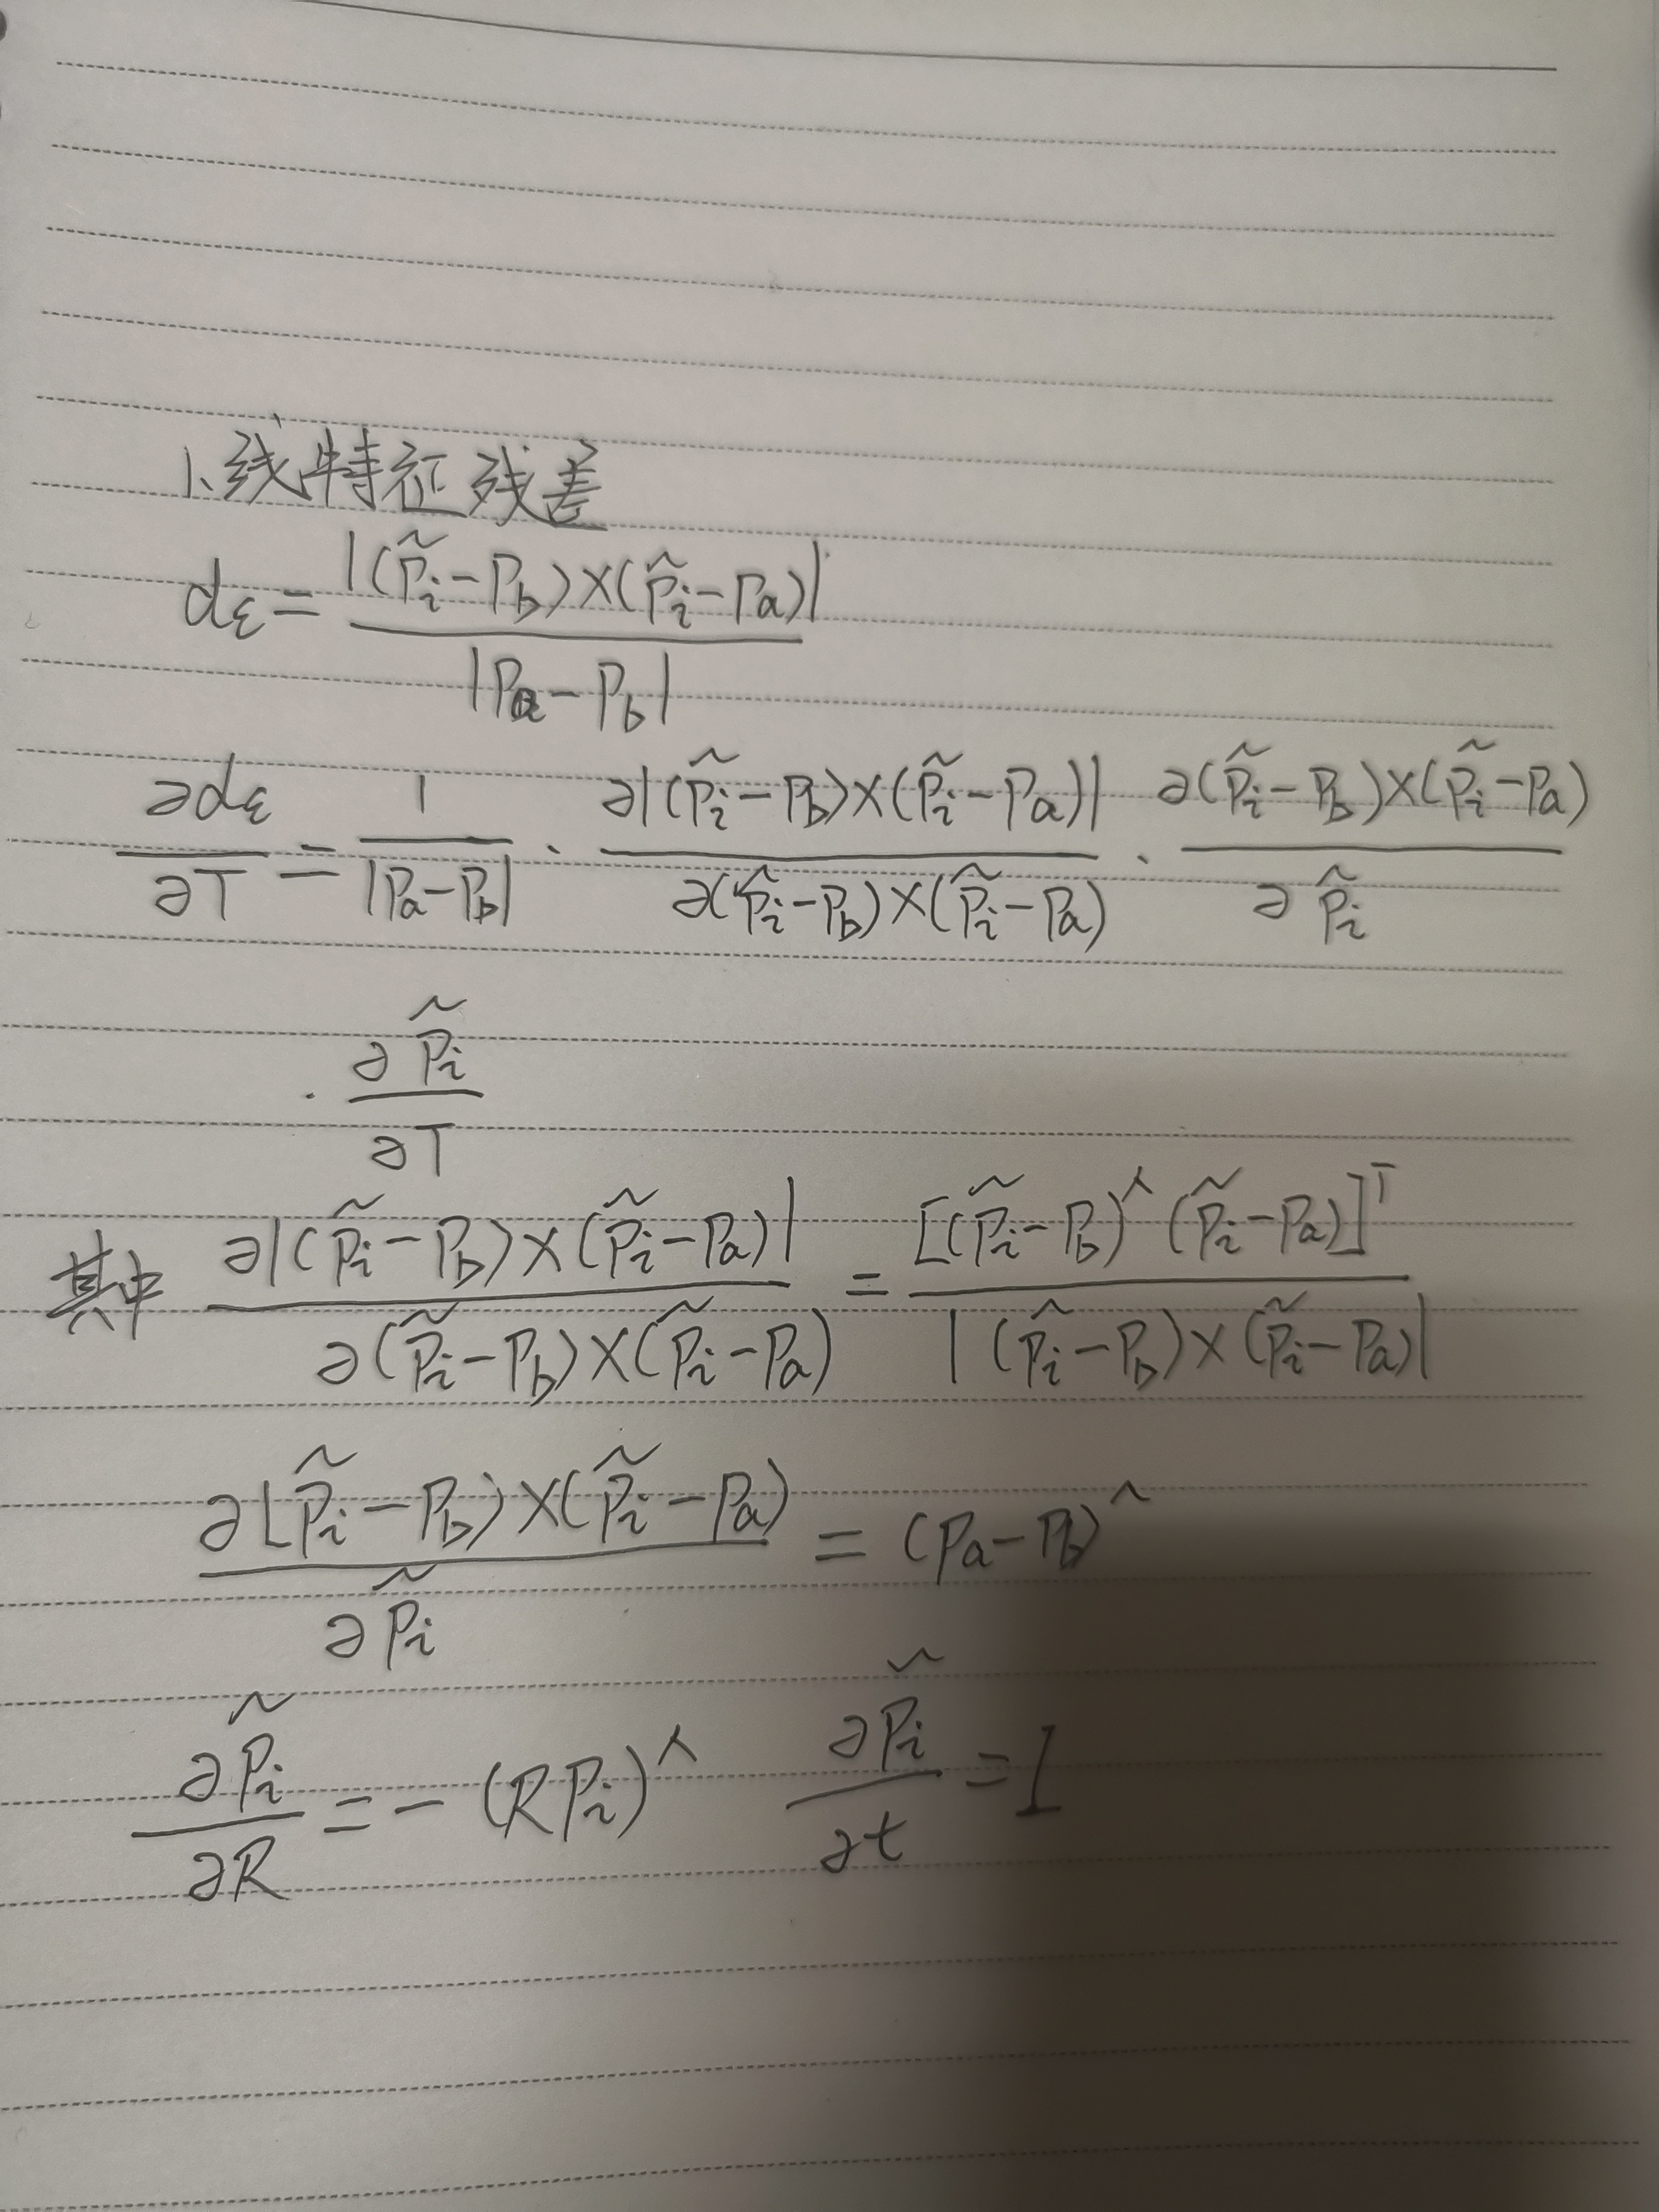 1、线特征残差
dε = |(p̃i − Pb)×(p̃i − Pa)| / |Pa − Pb|
∂dε/∂T = 1/|Pa − Pb| · ∂|(p̃i − Pb)×(p̃i − Pa)| / ∂(p̃i − Pb)×(p̃i − Pa) · ∂(p̃i − Pb)×(p̃i − Pa) / ∂p̃i
· ∂p̃i/∂T
其中 ∂|(p̃i − Pb)×(p̃i − Pa)| / ∂(p̃i − Pb)×(p̃i − Pa) = [(p̃i − Pb)^(p̃i − Pa)]ᵀ / |(p̃i − Pb)×(p̃i − Pa)|
∂(p̃i − Pb)×(p̃i − Pa) / ∂p̃i = (Pa − Pb)^
∂p̃i/∂R = −(RPi)^ ∂p̃i/∂t = I